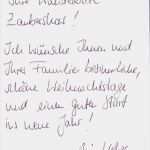 Zaubershow!
Ich wünsche Ihnen und
Ihrer Familie
schöne Weihnachtstage
und einen guten Start
ins neue Jahr!